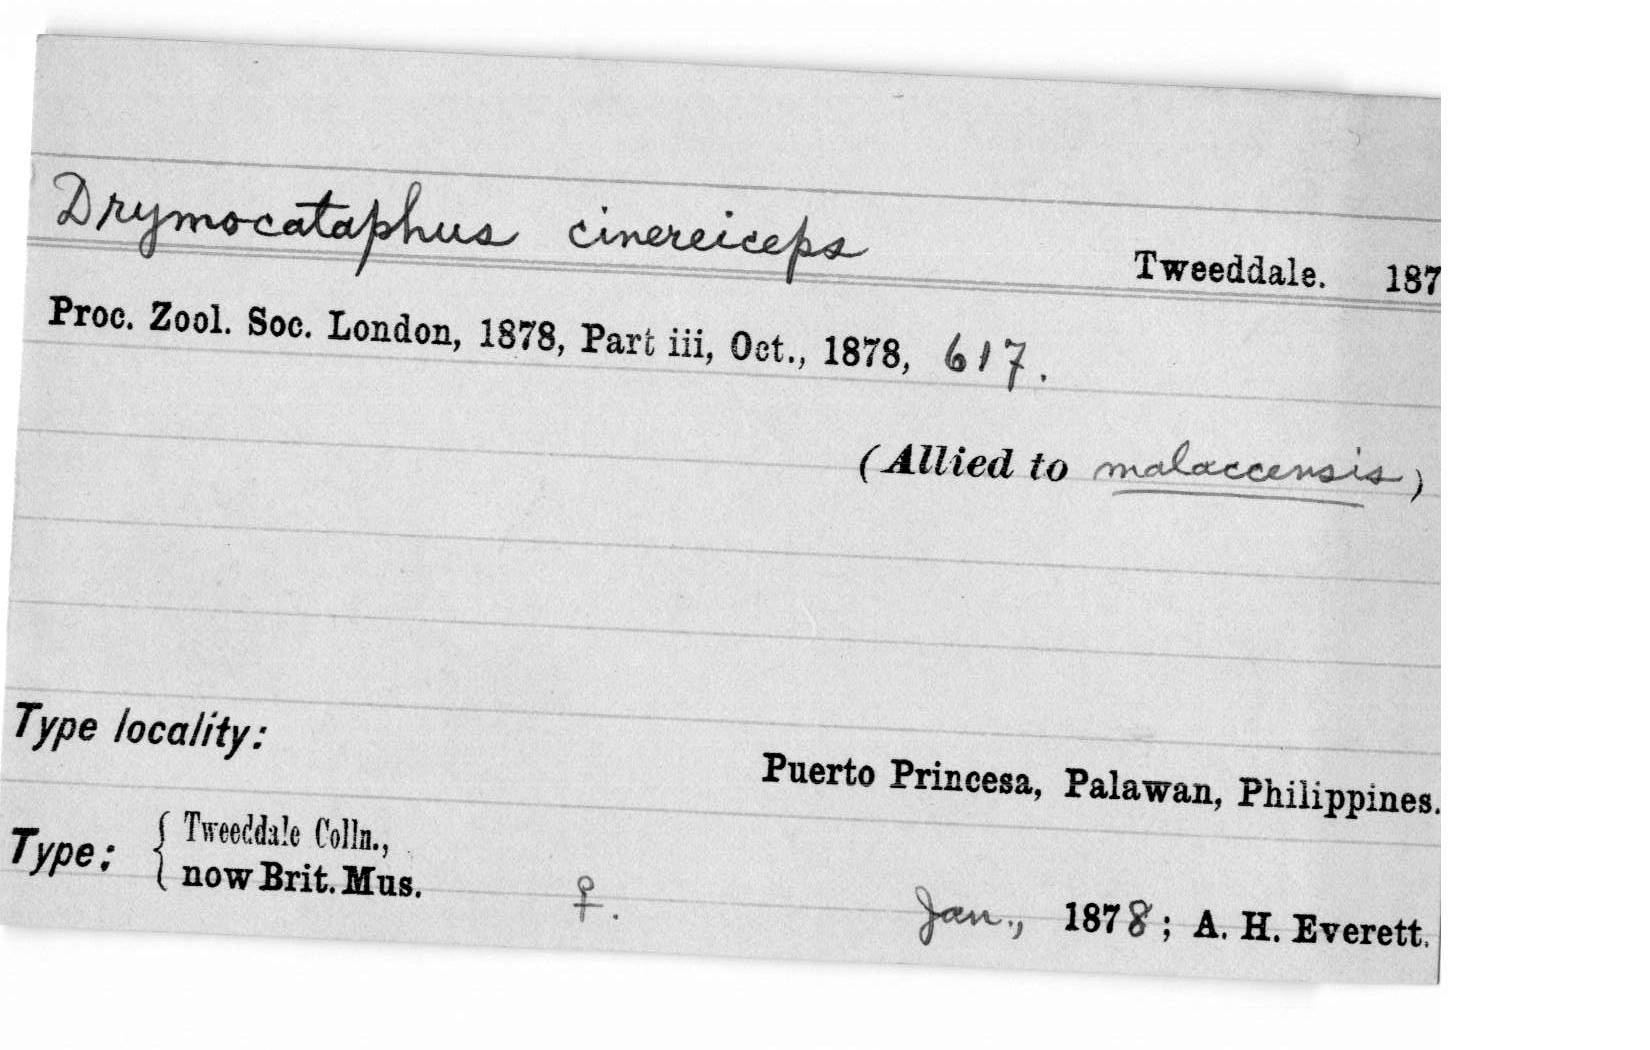 Drymocataphus cinereiceps Tweeddale. 187
Proc. Zool. Soc. London, 1878, Part iii, Oct., 1878, 617.
(Allied to malaccensis)
Type locality:
Puerto Princesa, Palawan, Philippines.
Type: { Tweeddale Colln.,
now Brit. Mus. ♀. Jan., 1878; A. H. Everett.